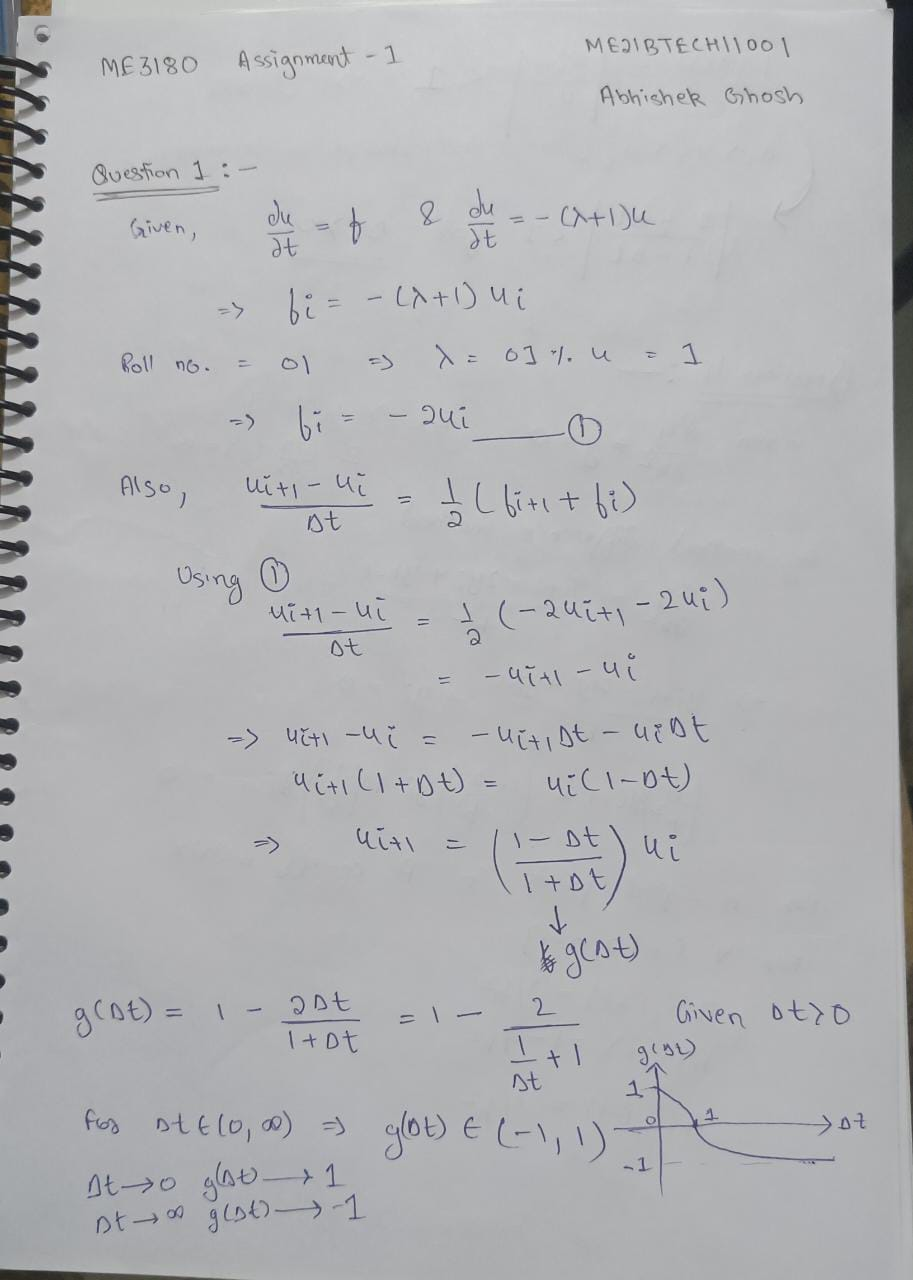 ME3180 Assignment - 1
ME21BTECH11001
Abhishek Ghosh
Question 1 :-
Given, du/dt = f & du/dt = -(λ+1)u
=> fi = -(λ+1) ui
Roll no. = 01 => λ = 01 % 4 = 1
=> fi = -2ui ——— ①
Also, (ui+1 - ui)/Δt = 1/2 (fi+1 + fi)
Using ①
(ui+1 - ui)/Δt = 1/2 (-2ui+1 - 2ui)
= -ui+1 - ui
=> ui+1 - ui = -ui+1Δt - uiΔt
ui+1(1+Δt) = ui(1-Δt)
=> ui+1 = ((1-Δt)/(1+Δt)) ui
↓
g(Δt)
g(Δt) = 1 - 2Δt/(1+Δt) = 1 - 2/(1/Δt + 1) Given Δt>0
g(Δt)
1
For Δt ∈ (0, ∞) => g(Δt) ∈ (-1, 1)
0 1 Δt
-1
Δt → 0 g(Δt) → 1
Δt → ∞ g(Δt) → -1